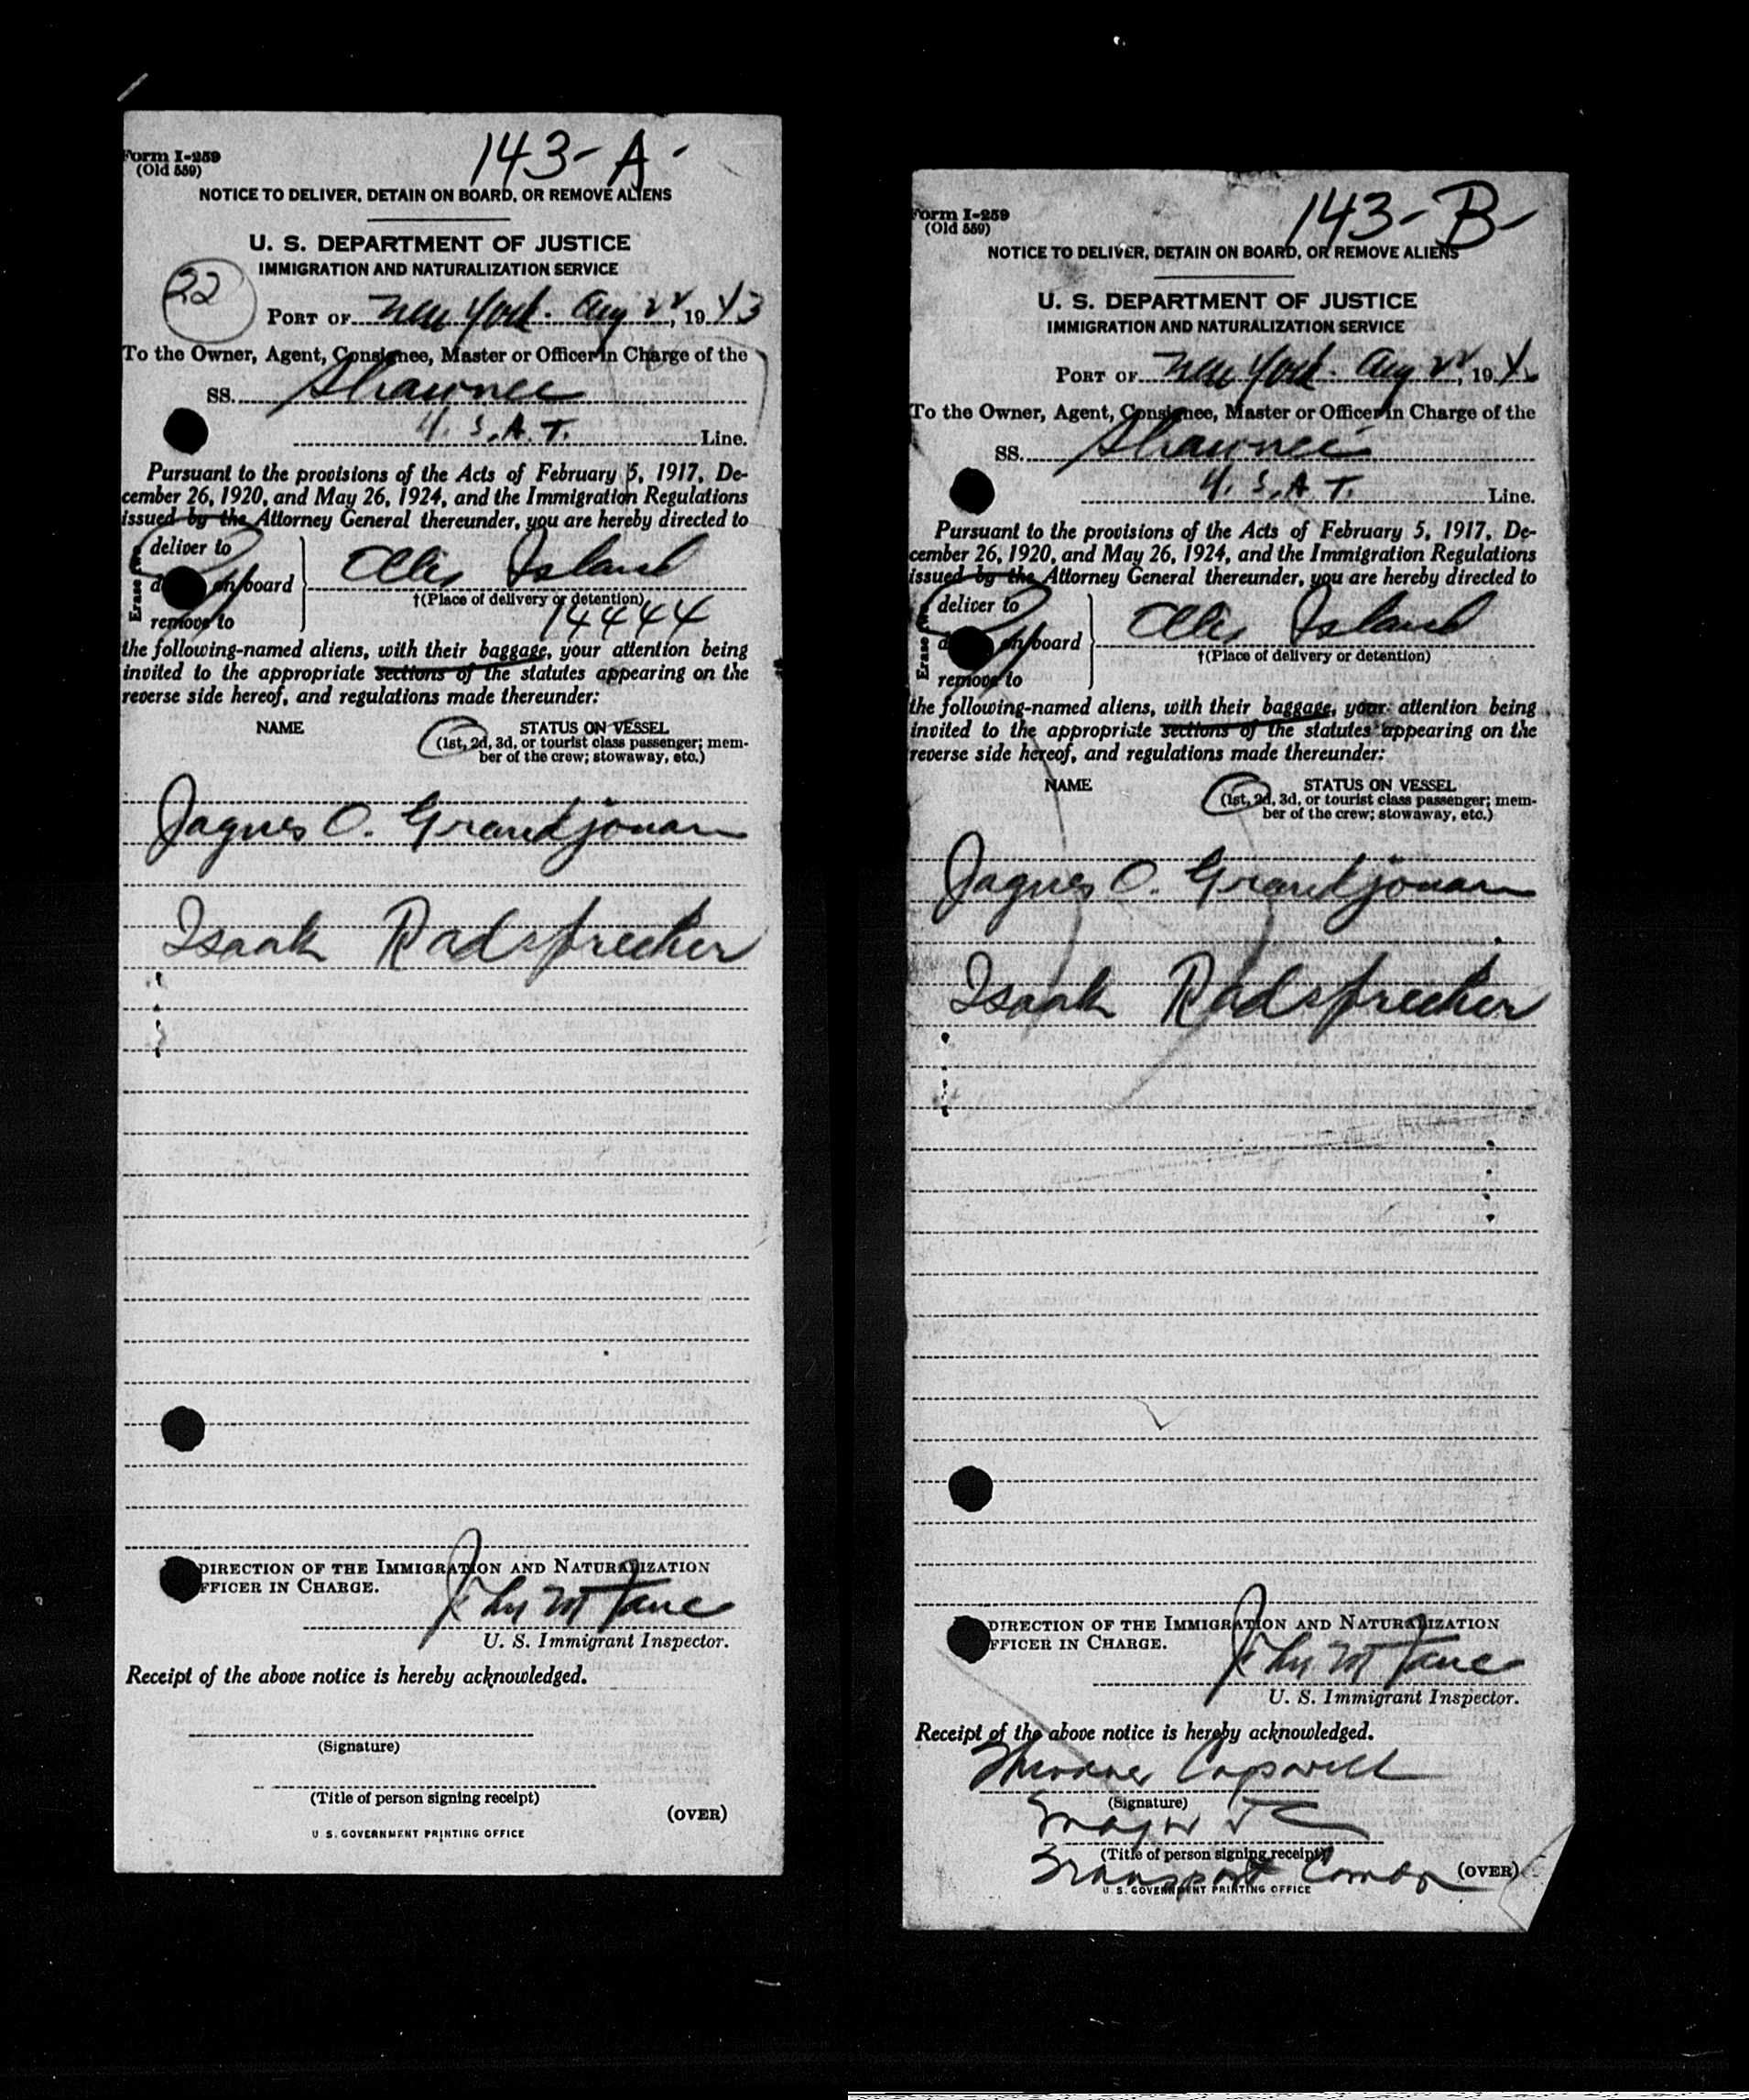 143-A-
Form I-259
(Old 559)
NOTICE TO DELIVER, DETAIN ON BOARD, OR REMOVE ALIENS
U. S. DEPARTMENT OF JUSTICE
IMMIGRATION AND NATURALIZATION SERVICE
22
PORT OF New York. Aug 22, 1943
To the Owner, Agent, Consignee, Master or Officer in Charge of the
SS. Shawnee
U. S. A. T. Line.
Pursuant to the provisions of the Acts of February 5, 1917, De-
cember 26, 1920, and May 26, 1924, and the Immigration Regulations
issued by the Attorney General thereunder, you are hereby directed to
deliver to
d on board Ellis Island
Erase two
†(Place of delivery or detention)
remove to 14444
the following-named aliens, with their baggage, your attention being
invited to the appropriate sections of the statutes appearing on the
reverse side hereof, and regulations made thereunder:
NAME STATUS ON VESSEL
(1st, 2d, 3d, or tourist class passenger; mem-
ber of the crew; stowaway, etc.)
Jaques O. Grandjouan
Isaak Radsprecher
DIRECTION OF THE IMMIGRATION AND NATURALIZATION
FFICER IN CHARGE.
John M Fare
U. S. Immigrant Inspector.
Receipt of the above notice is hereby acknowledged.
(Signature)
(Title of person signing receipt)
(OVER)
U. S. GOVERNMENT PRINTING OFFICE
143-B-
Form I-259
(Old 559)
NOTICE TO DELIVER, DETAIN ON BOARD, OR REMOVE ALIENS
U. S. DEPARTMENT OF JUSTICE
IMMIGRATION AND NATURALIZATION SERVICE
PORT OF New York. Aug 22, 194
To the Owner, Agent, Consignee, Master or Officer in Charge of the
SS. Shawnee
U. S. A. T. Line.
Pursuant to the provisions of the Acts of February 5, 1917, De-
cember 26, 1920, and May 26, 1924, and the Immigration Regulations
issued by the Attorney General thereunder, you are hereby directed to
deliver to
d on board Ellis Island
Erase two
†(Place of delivery or detention)
remove to
the following-named aliens, with their baggage, your attention being
invited to the appropriate sections of the statutes appearing on the
reverse side hereof, and regulations made thereunder:
NAME STATUS ON VESSEL
(1st, 2d, 3d, or tourist class passenger; mem-
ber of the crew; stowaway, etc.)
Jaques O. Grandjouan
Isaak Radsprecher
DIRECTION OF THE IMMIGRATION AND NATURALIZATION
FFICER IN CHARGE.
John M Fare
U. S. Immigrant Inspector.
Receipt of the above notice is hereby acknowledged.
Capwell
(Signature)
Major T C
(Title of person signing receipt)
Transport Comdr
(OVER)
U. S. GOVERNMENT PRINTING OFFICE